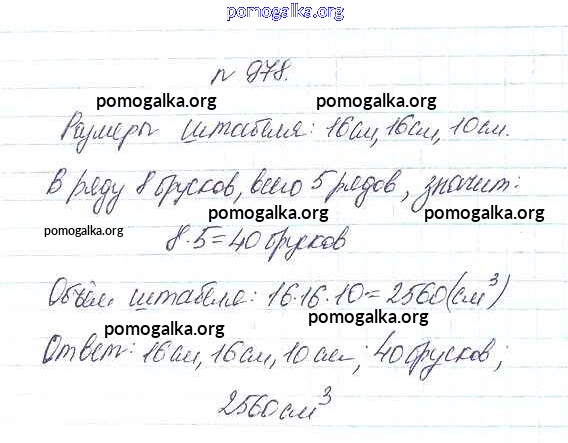 pomogalka.org
№ 978.
pomogalka.org pomogalka.org
Размеры штабеля: 16см, 16см, 10см.
В ряду 8 брусков, всего 5 рядов, значит:
pomogalka.org pomogalka.org pomogalka.org
8·5=40 брусков
Объём штабеля: 16·16·10=2560(см³)
pomogalka.org pomogalka.org
Ответ: 16см, 16см, 10см; 40 брусков;
pomogalka.org pomogalka.org
2560см³